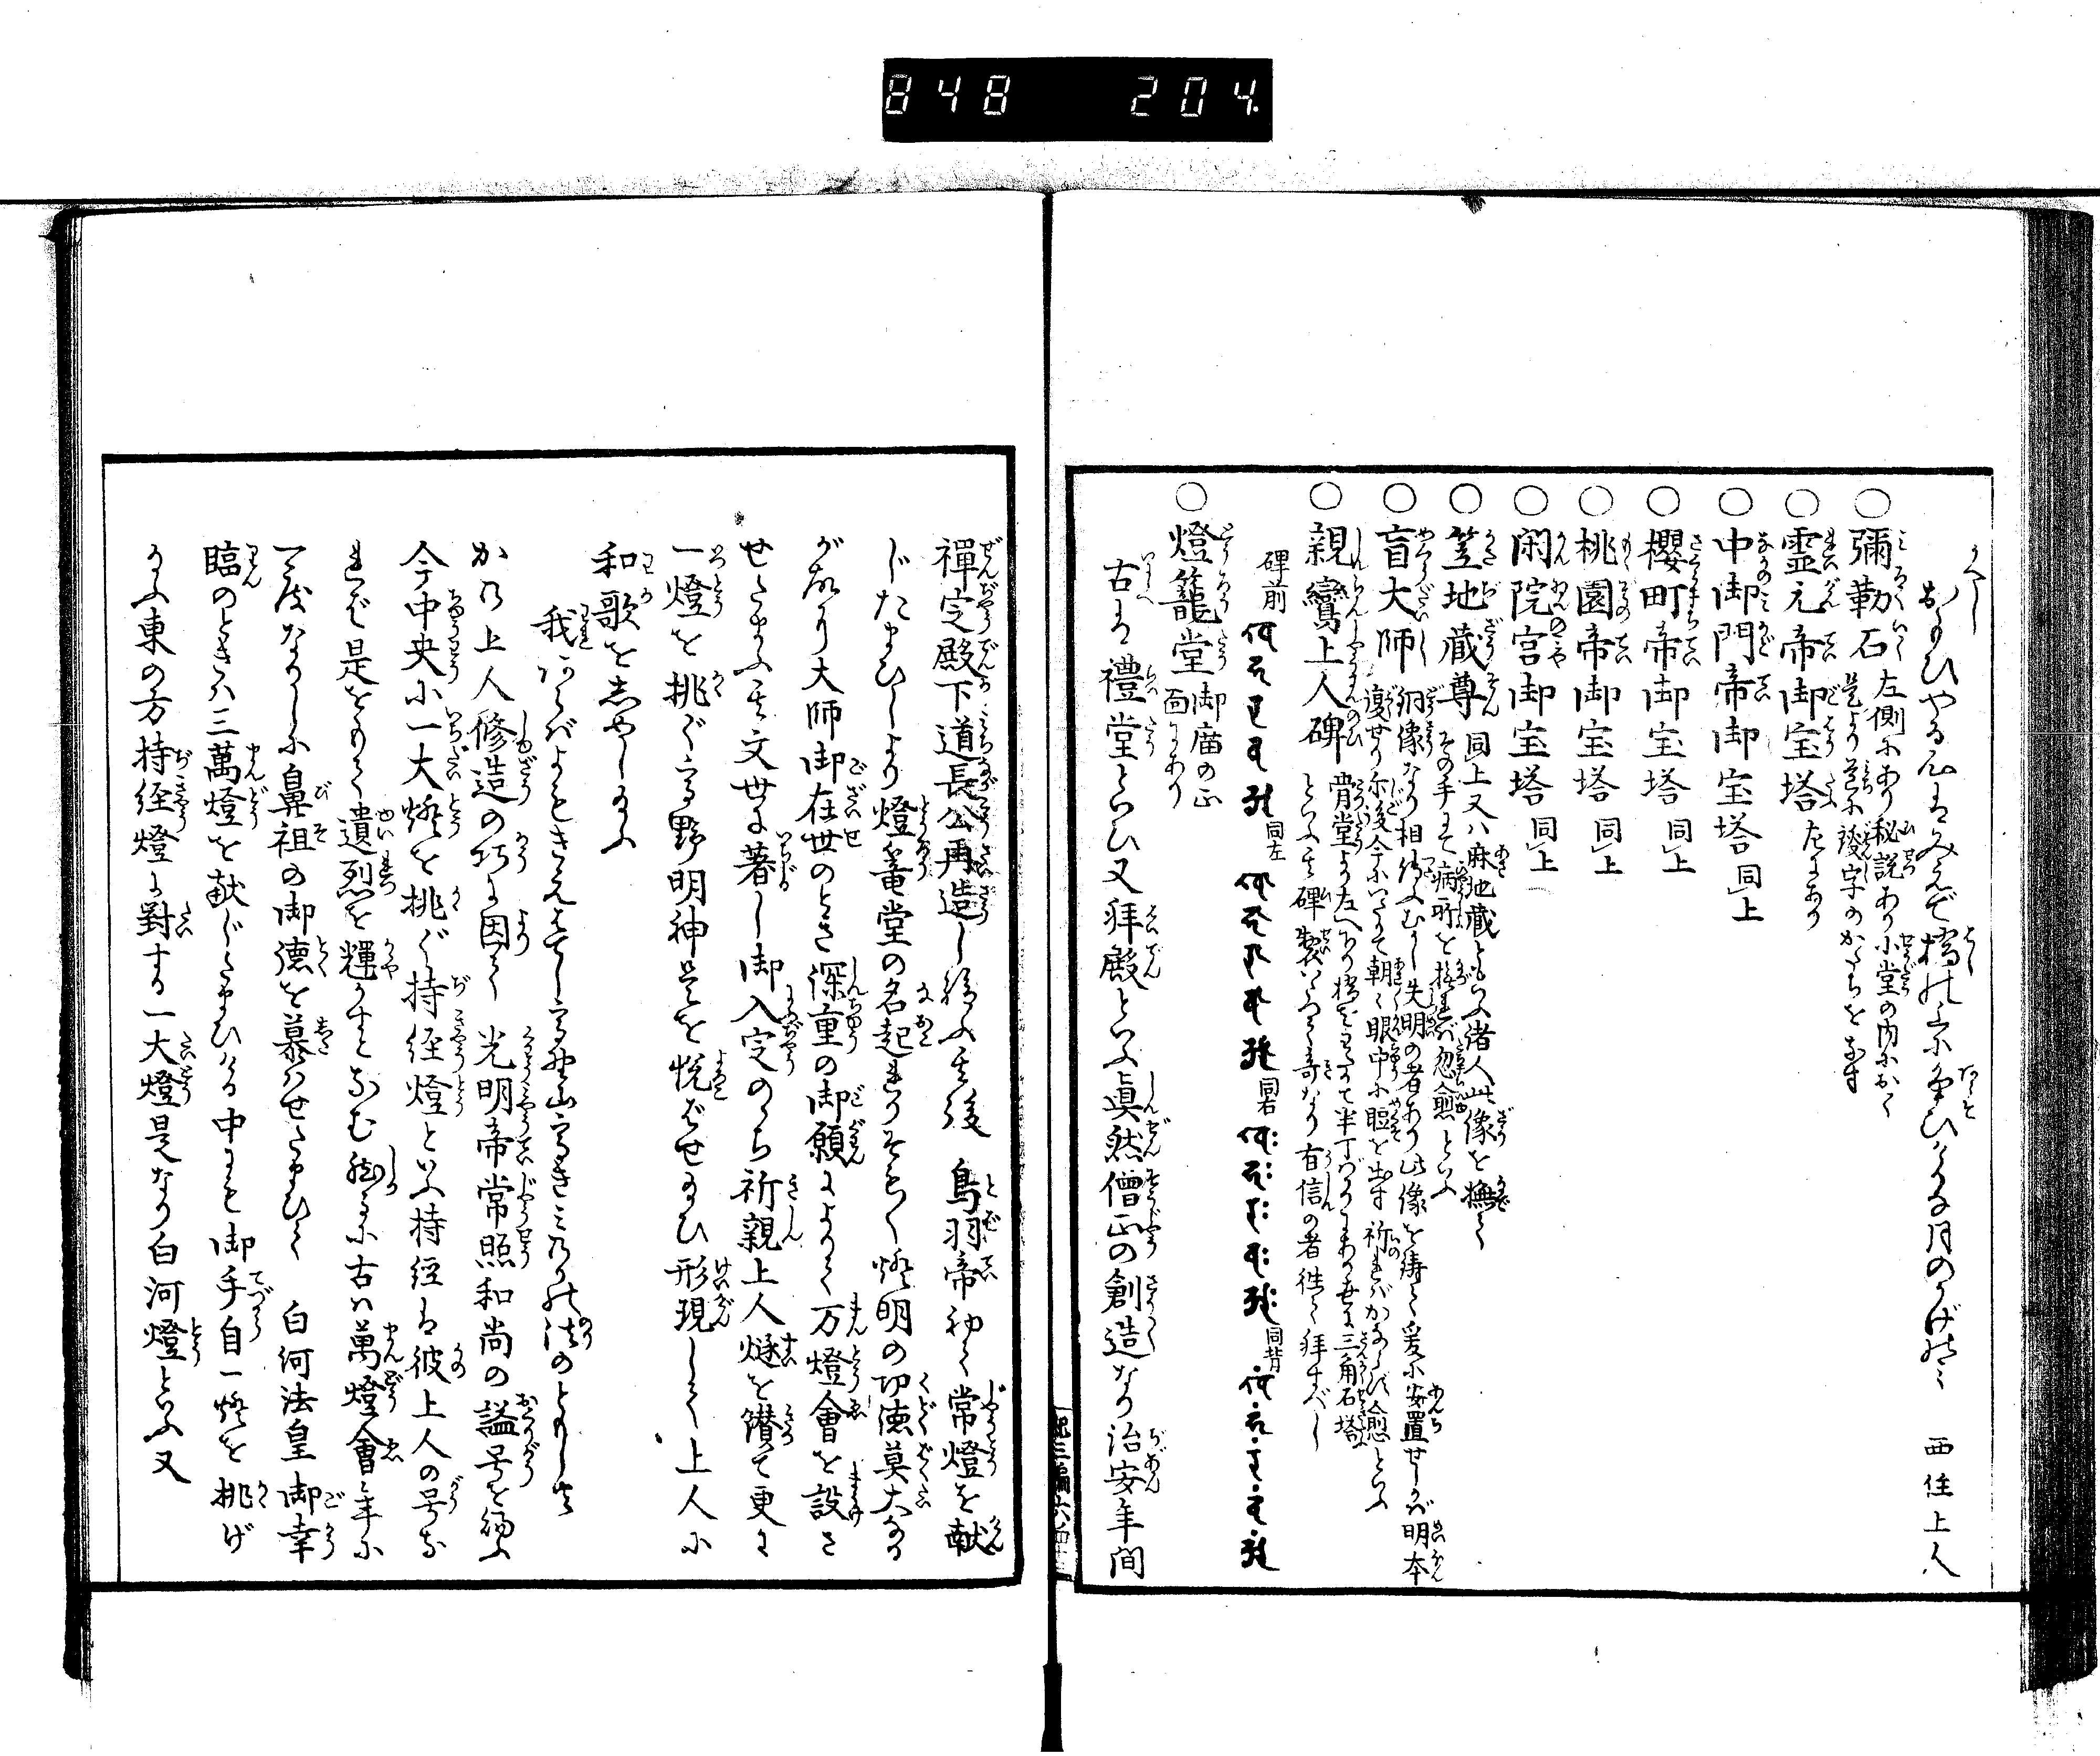 848 204
かへし
おもひやる心はみえで橋の上にあらそひけりな月のかげのミ 西住上人
○彌勒石 左側にあり秘説あり小堂の内におく
是より道に護字のかたちをなす
○霊元帝御宝塔 左にあり
○中御門帝御宝塔 同上
○櫻町帝御宝塔 同上
○桃園帝御宝塔 同上
○閑院宮御宝塔 同上
○笠地蔵尊 同上又ハ麻地蔵ともいふ諸人此像を撫て
その手にて病所を撫れバ忽愈といふ
○盲大師 銅像なり相傳ふむかし失明の者あり此像を鋳て爰に安置せしかバ明本
復せり尓後今にいたりて朝々眼中に眵を出す祈れバかならず愈といふ
○親鸞上人碑 骨堂より左へ下り橋をわたりて半丁ばかりにあり世に三角石塔
といふ其碑製いたつて奇なり有信の者往て拝すべし
碑前 同左 同右 同背
○燈籠堂 御庿の正
面にあり
古は禮堂といひ又拜殿といふ眞然僧正の創造なり治安年間
禅定殿下道長公再造し給ふ其後 鳥羽帝初て常燈を献
じたまひしより燈篭堂の名起れりそもそも燈明の功徳莫大なる
が故り大師御在世のとき深重の御願によりて万燈會を設さ
せたまふ其文世に著し御入定のゝち祈親上人燧を鑚て更に
一燈を挑ぐ高野明神是を悦ばせ給ひ形現して上人に
和歌をしめし給ふ
我あらばよもきえはてじ高野山高きみのりの法のともし火
かの上人修造の功に因て 光明帝常照和尚の謚号を給ふ
今中央に一大燈を挑ぐ持経燈といふ持経は彼上人の号な
れば是をもて遺烈を輝かすとなむ然るに古ハ萬燈會年に
一度なりしに鼻祖の御徳を慕ハせたまひて 白河法皇御幸
臨のときハ三萬燈を献じたまひける中にも御手自一燈を挑げ
給ふ東の方持経燈に對する一大燈是なり白河燈といふ又